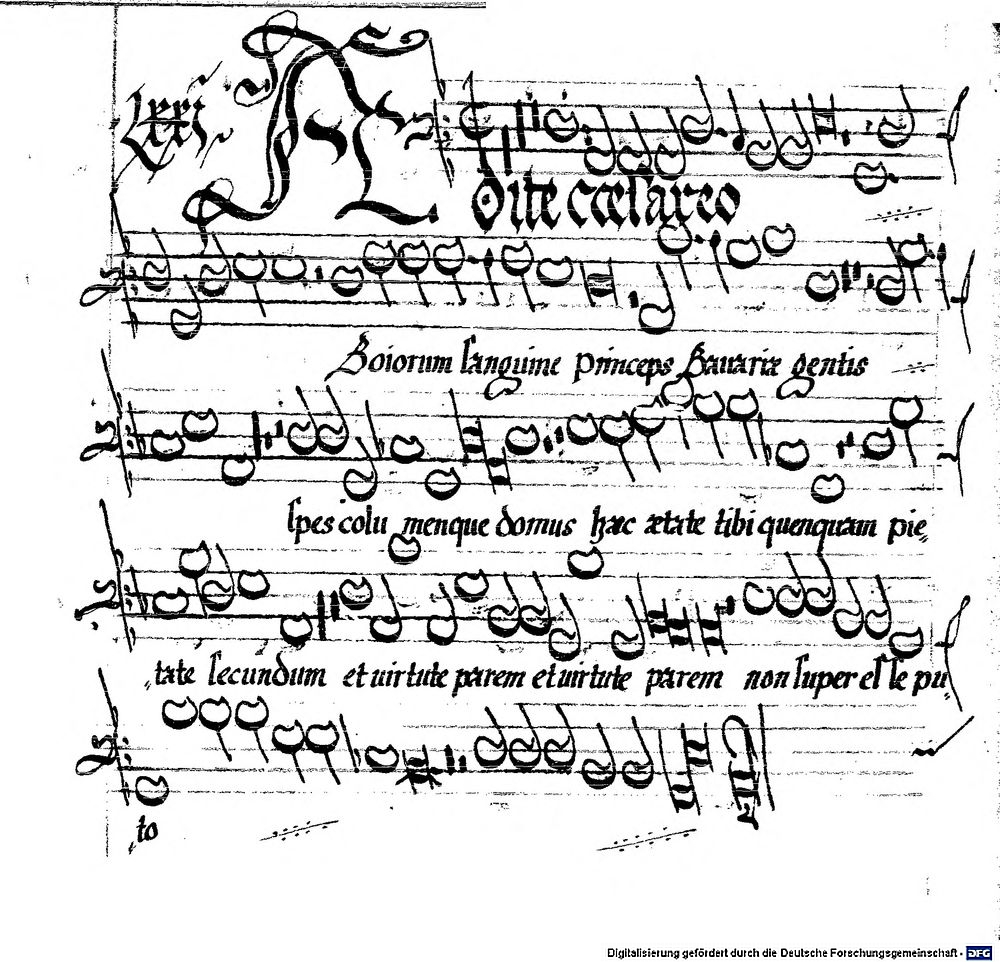 Lxxi
Ædite cœsareo
Boiorum sanguine princeps Bauariæ gentis
spes colu menque domus hæc ætate tibi quenquam pie„
„tate secundum et uirtute parem et uirtute parem non super es se pu„
„to
Digitalisierung gefördert durch die Deutsche Forschungsgemeinschaft - DFG